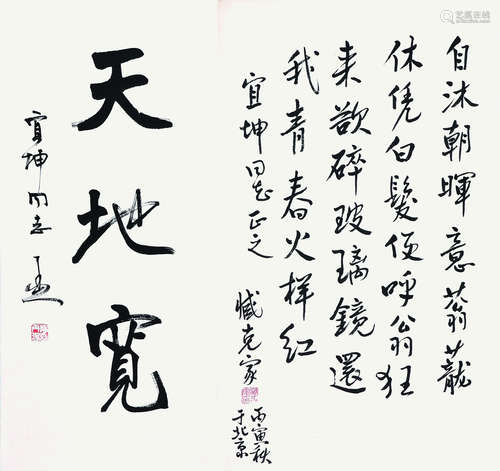 自沐朝暉意蓊蘢
休凭白髮便呼翁狂
来欲碎玻璃鏡還
我青春火样红
宜坤同志正之
臧克家
丙寅秋
于北京
天地寬
宜坤同志